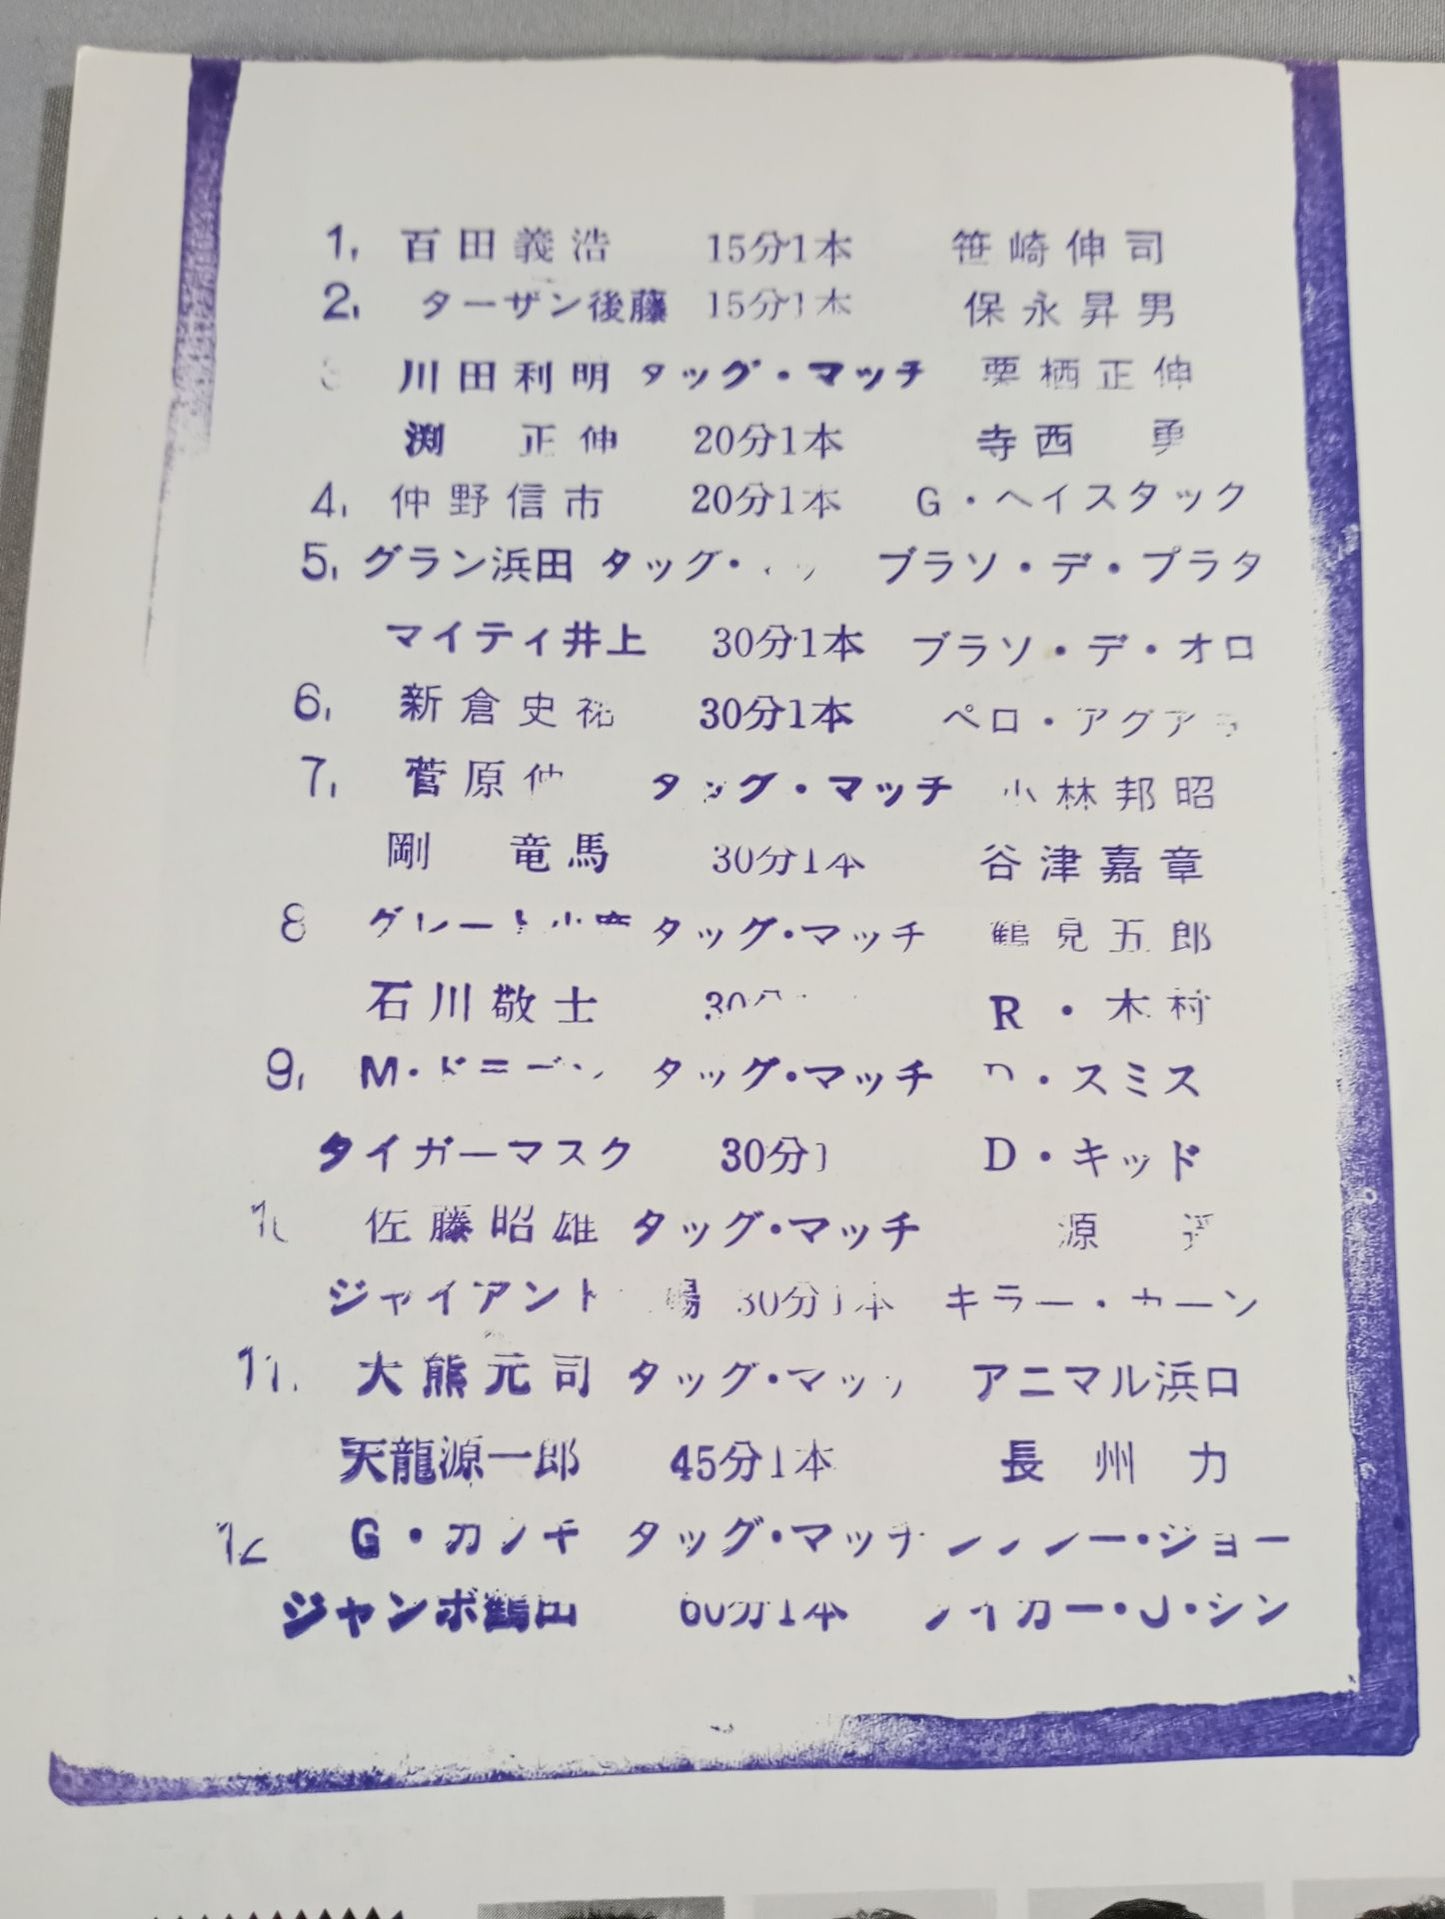 1, 百田義浩 15分1本 笹崎伸司
2, ターザン後藤 15分1本 保永昇男
3 川田利明 タッグ・マッチ 栗栖正伸
渕 正伸 20分1本 寺西 勇
4, 仲野信市 20分1本 G・ヘイスタック
5, グラン浜田 タッグ・ ブラソ・デ・プラタ
マイティ井上 30分1本 ブラソ・デ・オロ
6, 新倉史祐 30分1本 ペロ・アグアヨ
7, 菅原伸 タッグ・マッチ 小林邦昭
剛 竜馬 30分1本 谷津嘉章
8 グレート小鹿 タッグ・マッチ 鶴見五郎
石川敬士 30分 R・木村
9, M・ドニーゲン タッグ・マッチ D・スミス
タイガーマスク 30分1 D・キッド
10 佐藤昭雄 タッグ・マッチ 源
ジャイアント 馬場 30分1本 キラー・カーン
11, 大熊元司 タッグ・マッチ アニマル浜口
天龍源一郎 45分1本 長州力
12 G・カブキ タッグ・マッチ ・ジョー
ジャンボ鶴田 60分1本 タイガー・J・シン